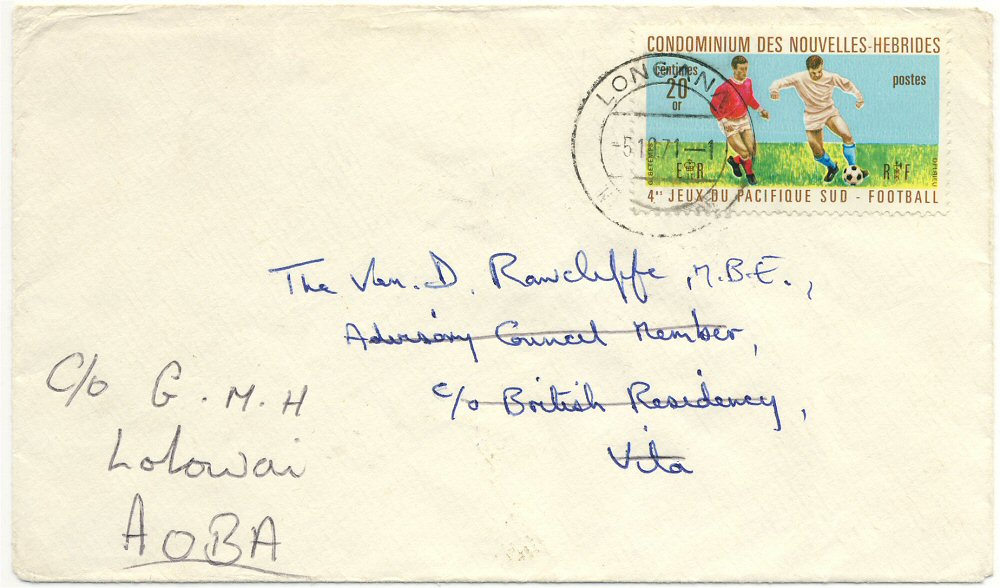 CONDOMINIUM DES NOUVELLES-HEBRIDES
centimes
20
or
postes
E R
R F
4es JEUX DU PACIFIQUE SUD - FOOTBALL
LONGANA
-5 10 71 - 1
The Ven. D. Rawcliffe, M.B.E.,
Advisory Council Member,
c/o British Residency,
Vila
C/o G.M.H
Lolowai
AOBA